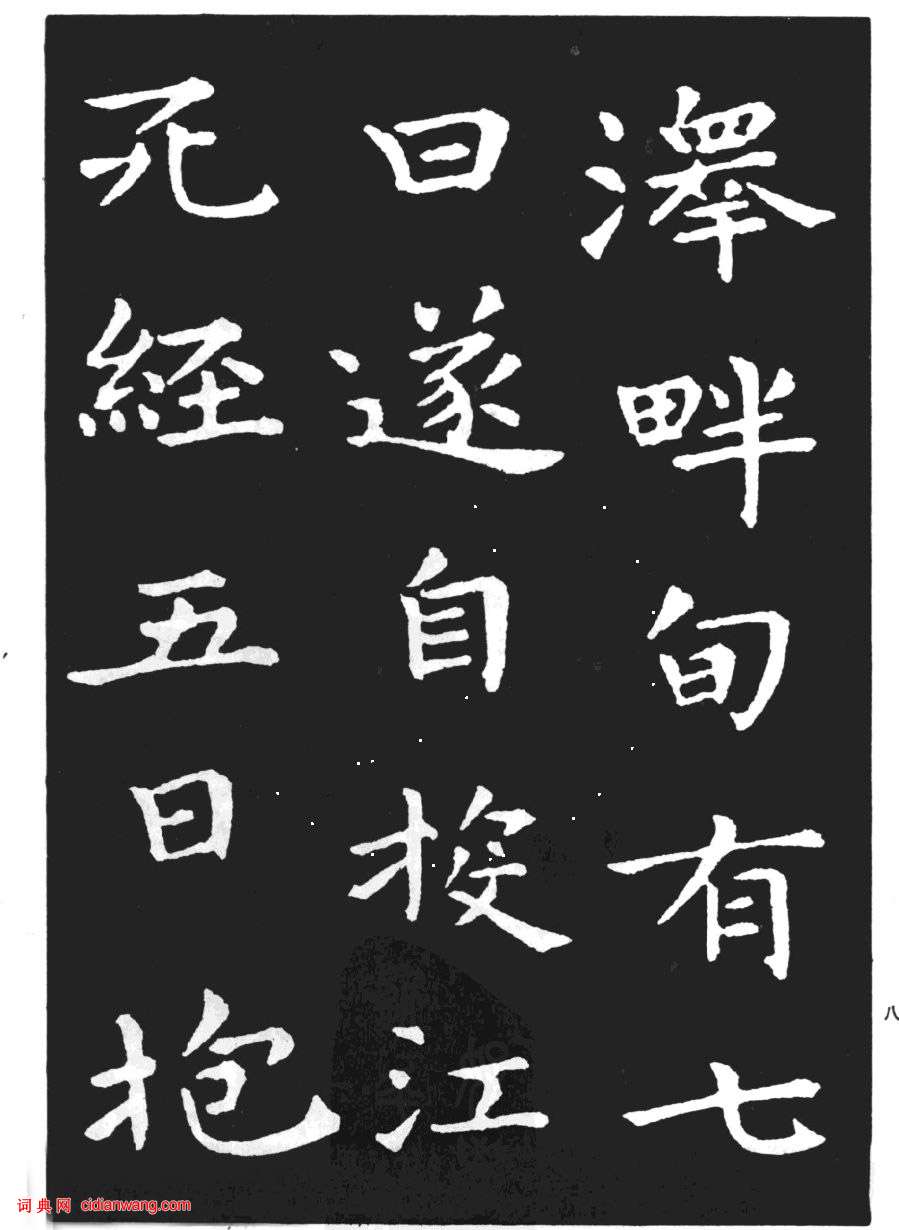 澤畔旬有七
日遂自投江
死經五日抱
八
词典网 cidianwang.com